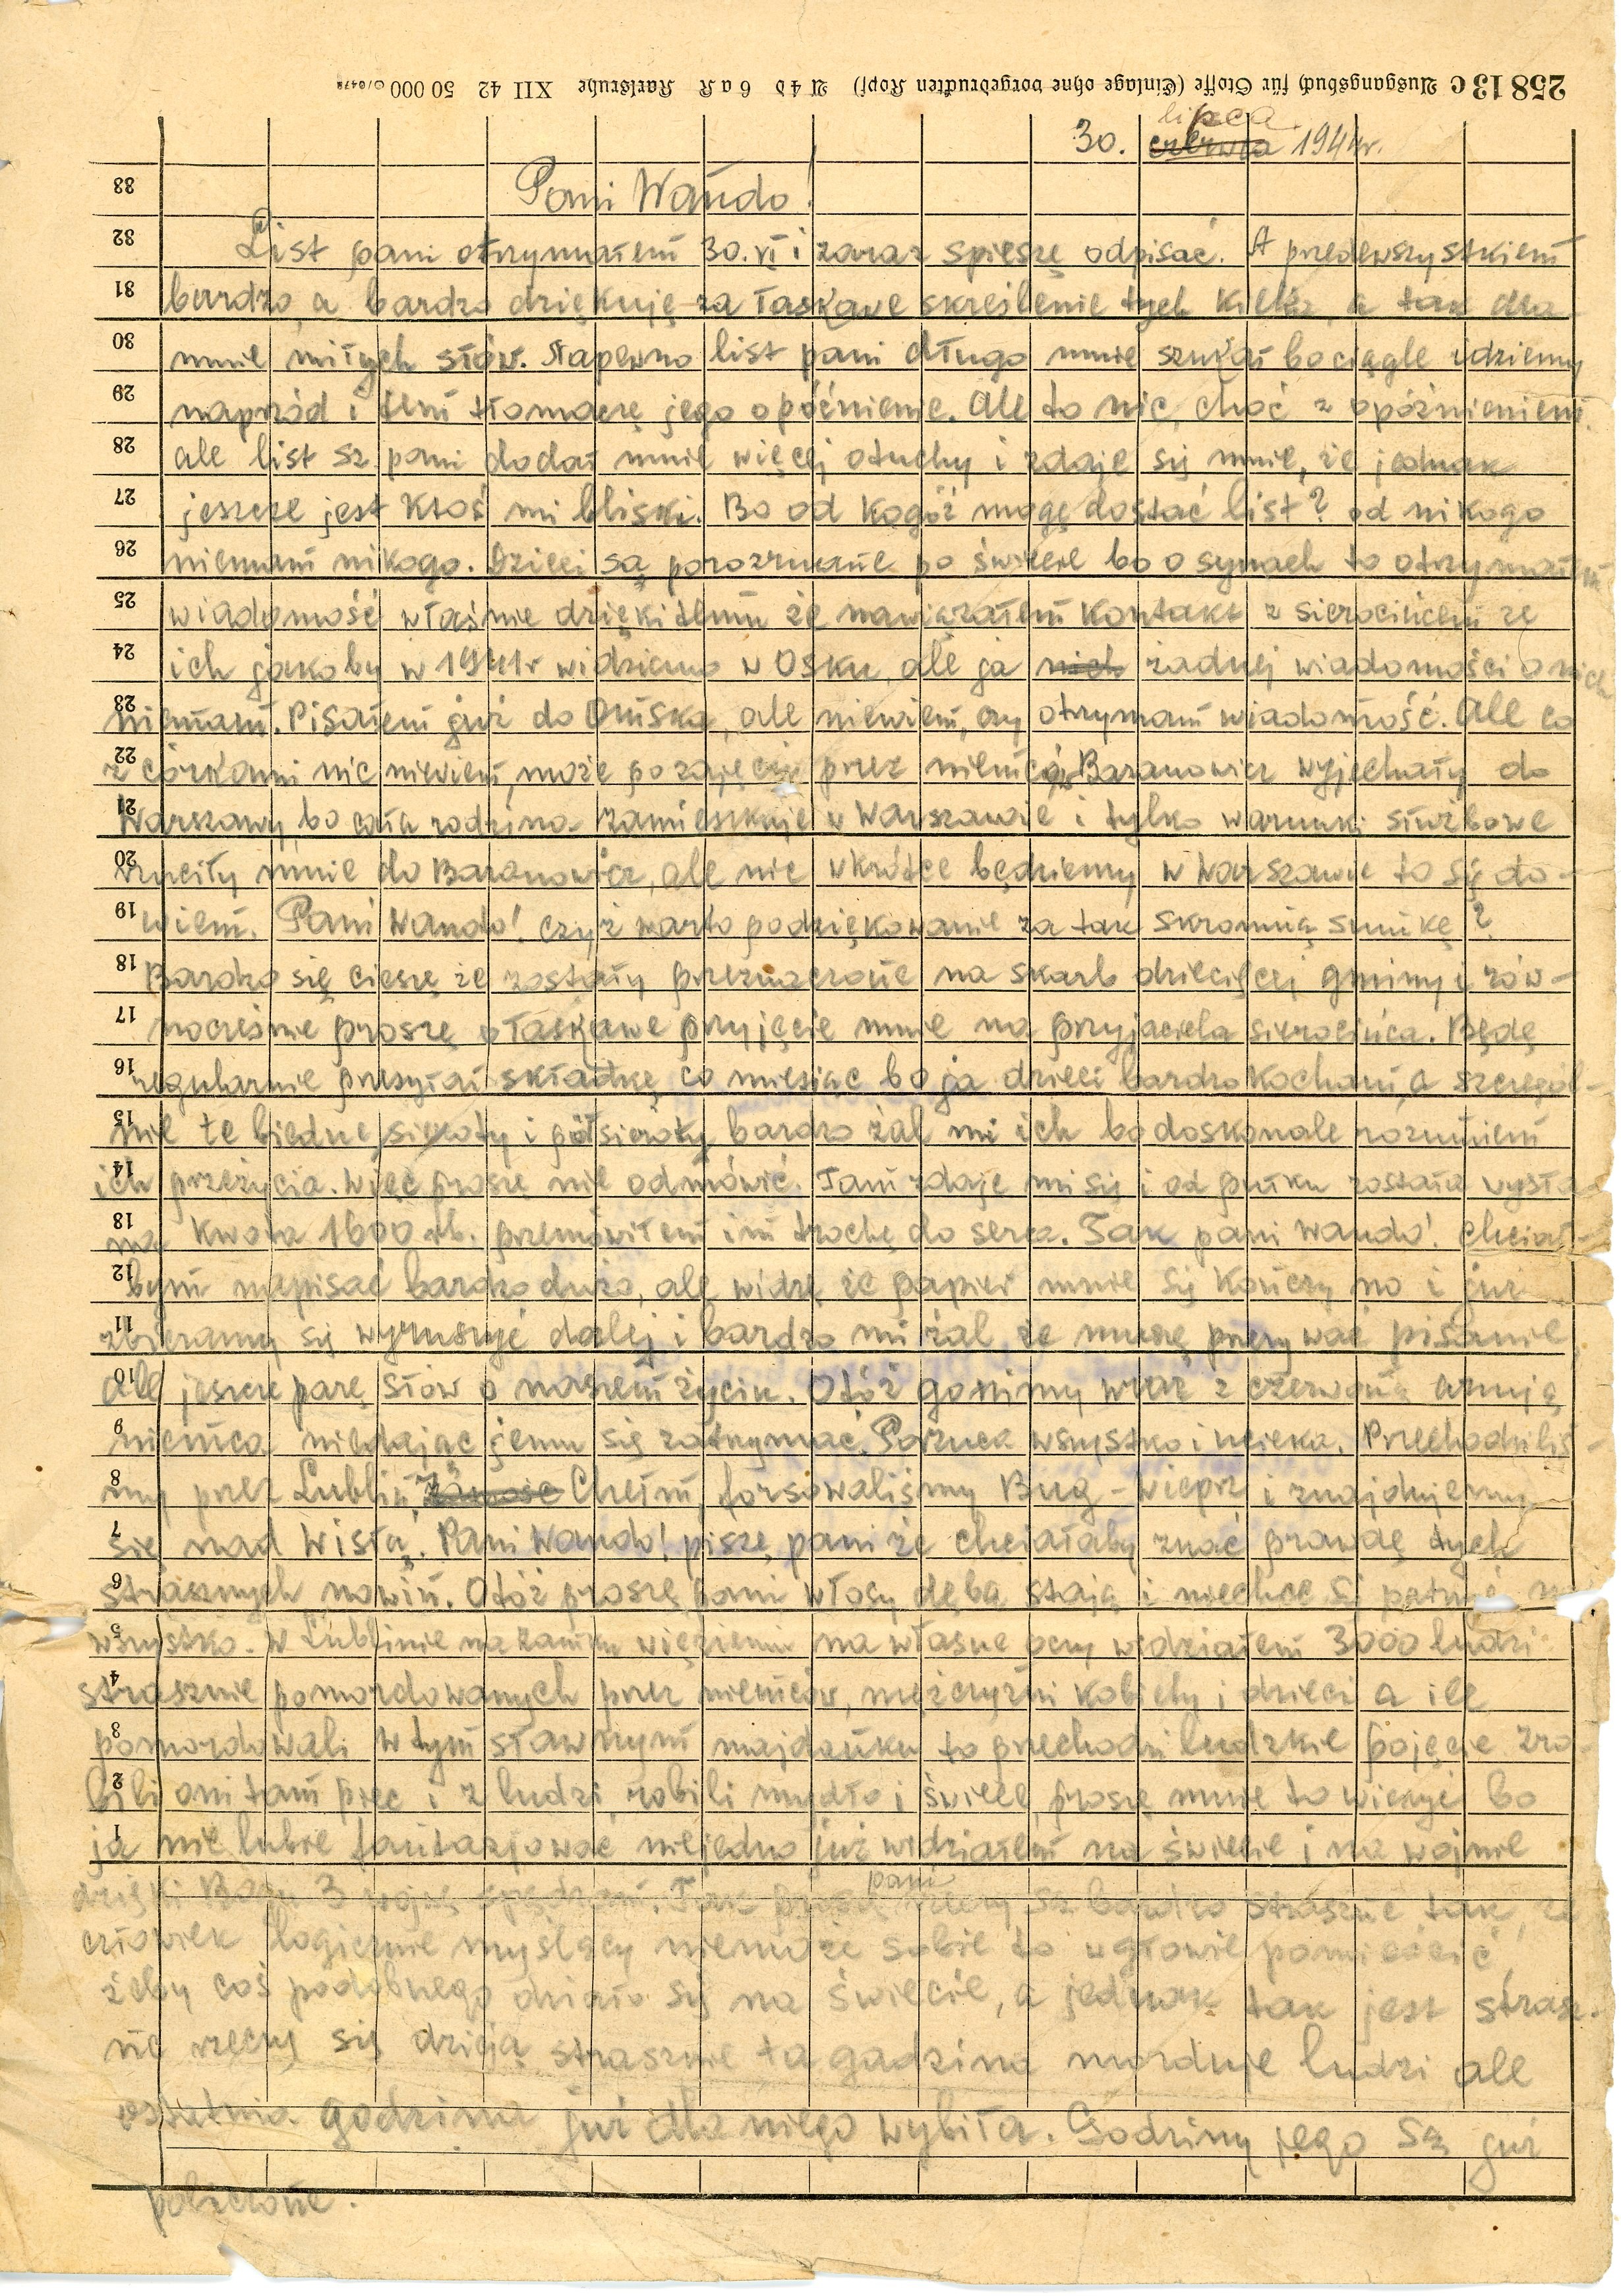 25813 c Ausgangsbuch für Stoffe (Einlage ohne vorgedruckten Kopf) A 4 d 6 a K Karlsruhe XII 42 50 000
lipca
30. czerwca 1944r.
33
Pani Wando!
32 List pani otrzymałem 30.VI i zaraz spieszę odpisać. A przedewszystkiem
31 bardzo, a bardzo dziękuję za łaskawe skreślenie tych kilku, a tak dla
30 mnie miłych słów. Napewno list pani długo mnie szukał bo ciągle idziemy
29 naprzód i tem tłomaczę jego opóźnienie. Ale to nic, choć z opóźnieniem
28 ale list sz. pani dodał mnie więcej otuchy i zdaje się mnie, że jednak
27 jeszcze jest ktoś mi bliski. Bo od kogóż mogę dostać list? od nikogo
26 niemam nikogo. Dzieci są porozrzucane po świecie bo o synach to otrzymałem
25 wiadomość właśnie dzięki temu że nawiązałem kontakt z sierocińcem że
24 ich jakoby w 1941r widziano w Osku, ale ja nich żadnej wiadomości o nich
23 niemam. Pisałem już do Omska, ale niewiem, czy otrzymam wiadomość. Ale co
22 z córkami nic niewiem, może po zajęciu przez niemców Baranowicz wyjechały do
21 Warszawy, bo cała rodzina zamieszkuje w Warszawie i tylko warunki służbowe
20 rzuciły mnie do Baranowicz, ale nic wkrótce będziemy w Warszawie to się do-
19 wiem. Pani Wando! czyż warto podziękowanie za tak skromną sumkę?
18 Bardzo się cieszę że zostały przeznaczone na skarb dziecięcej gminy i rów-
17 nocześnie proszę o łaskawe przyjęcie mnie na przyjaciela sierocińca. Będę
16 regularnie przesyłał składkę co miesiąc bo ja dzieci bardzo kocham, a szczegól-
15 nie te biedne sieroty i półsieroty bardzo żal mi ich bo doskonale rozumiem
14 ich przeżycia. Więc proszę nie odmówić. Tam zdaje mi się i od pułku została wysła-
13 na kwota 1600 rb. przemówiłem im trochę do serca. Tak pani Wando! chciał-
12 bym napisać bardzo dużo, ale widzę że papier mnie się kończy no i już
11 zbieramy się wyruszyć dalej i bardzo mi żal że muszę przerywać pisanie
10 ale jeszcze parę słów o naszem życiu. Otóż gonimy wraz z czerwoną armją
9 niemca niedając jemu się zatrzymać. Porzuca wszystko i ucieka. Przechodziliś-
8 my przez Lublin, Zamość Chełm, forsowaliśmy Bug - Wieprz i znajdujemy
7 się nad Wisłą. Pani Wando! pisze pani że chciałaby znać prawdę tych
6 strasznych nowin. Otóż proszę pani włosy dęba stają i niechce się patrzeć na
5 wszystko. W Lublinie na zamku więzieniu na własne oczy widziałem 3000 ludzi
4 strasznie pomordowanych przez niemców, mężczyźni kobiety i dzieci a ile
3 pomordowali w tym sławnym majdanku to przechodzi ludzkie pojęcie zro-
2 bili oni tam piec i z ludzi robili mydło i świece, proszę mnie to wierzyć bo
1 ja nie lubię fantazjować niejedno już widziałem na świecie i na wojnie
dzięki Bogu 3 wojnę spędzam. Tak proszę pani rzeczy są bardzo straszne tak, że
człowiek logicznie myślący niemoże sobie to w głowie pomieścić,
żeby coś podobnego działo się na świecie, a jednak tak jest strasz-
ne rzeczy się dzieją strasznie ta gadzina morduje ludzi ale
ostatnia godzina już dla niego wybiła. Godziny jego są już
policzone.